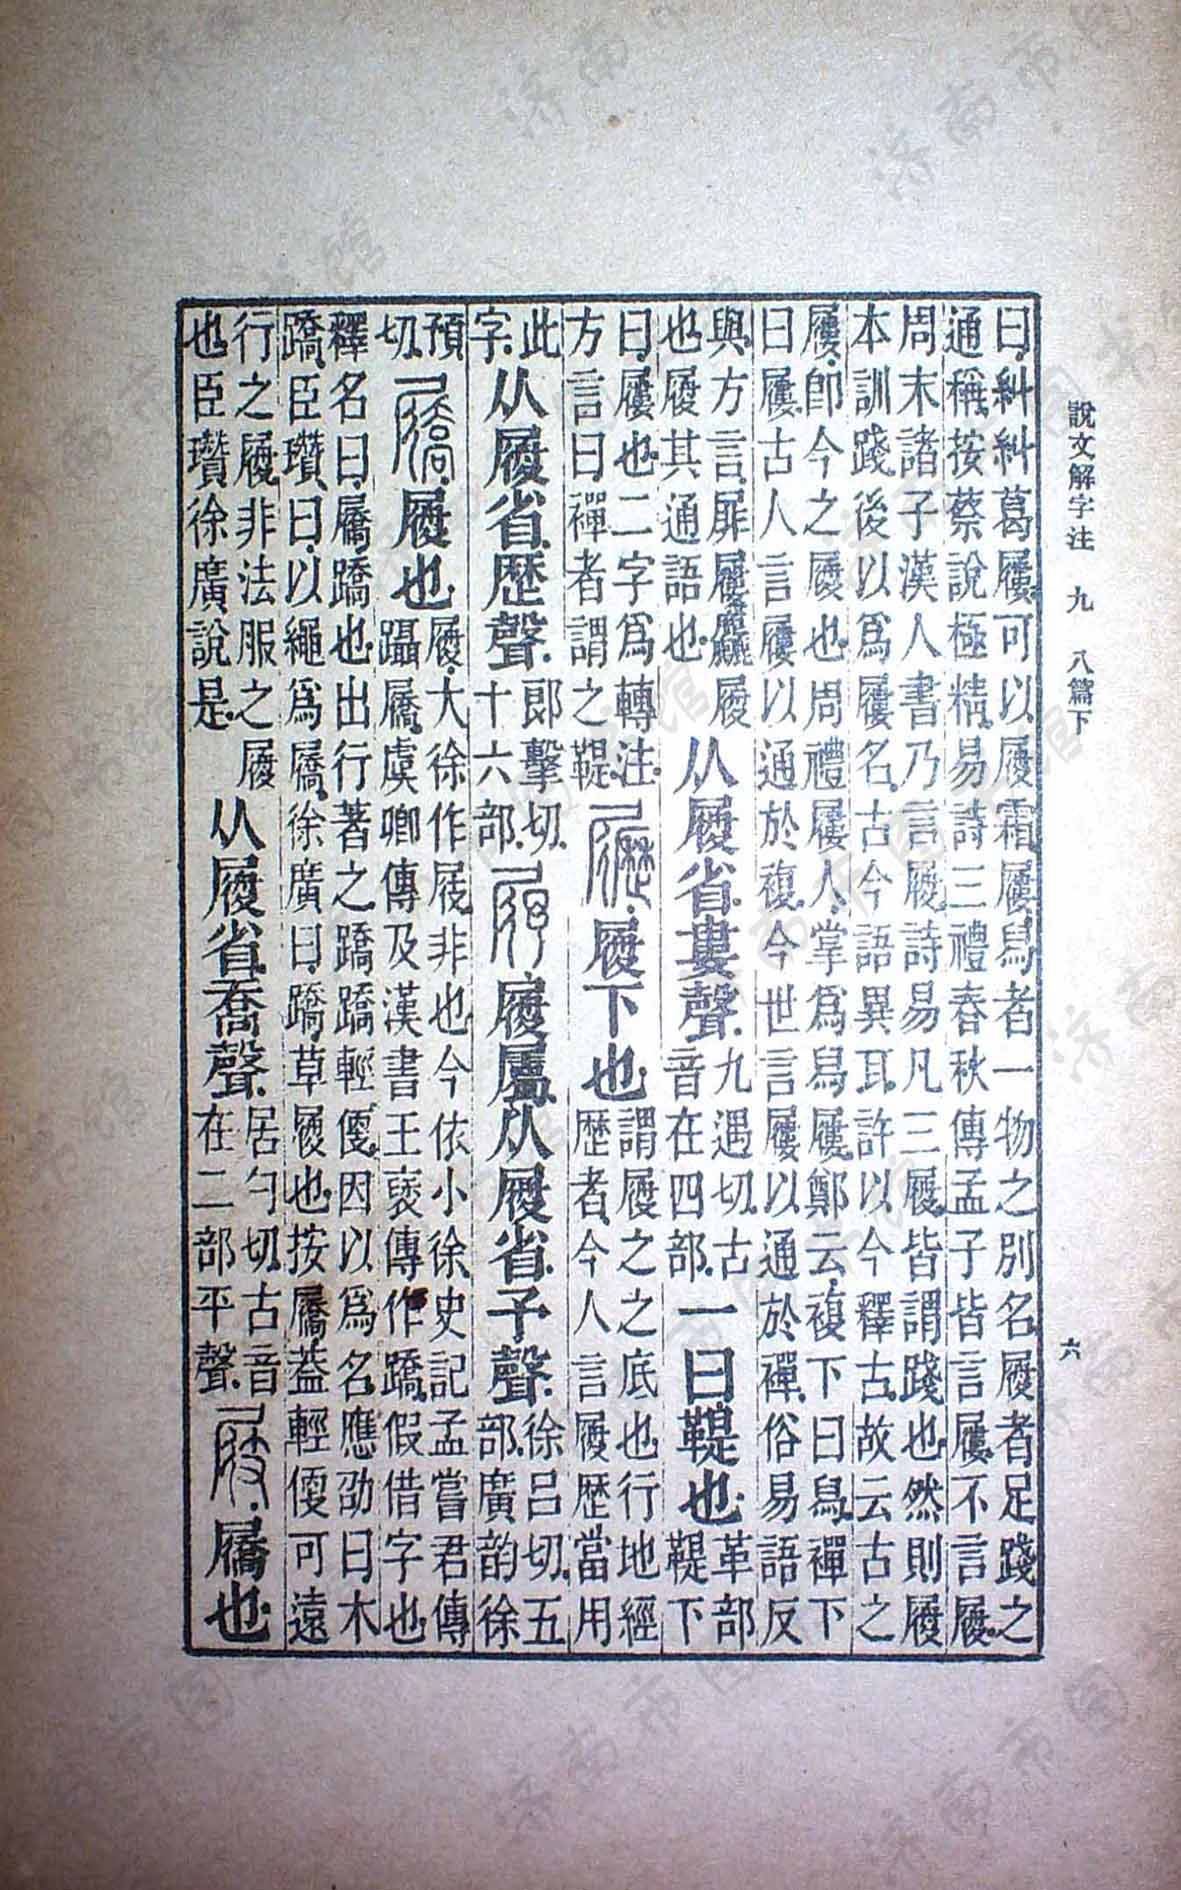 說文解字注 九 八篇下 六
曰糾糾葛屨可以履霜屨舄者一物之別名履者足踐之
通稱按蔡說極精易詩三禮春秋傳孟子皆言屨不言履
周末諸子漢人書乃言履詩易凡三履皆謂踐也然則履
本訓踐後以爲屨名古今語異耳許以今釋古故云古之
屨卽今之履也周禮屨人掌爲舄屨鄭云複下曰舄禪下
曰屨古人言屨以通於複今世言屨以通於禪俗易語反
與方言屝屨麤履
也履其通語也
从履省婁聲
九遇切古
音在四部
一曰鞮也
革部
鞮下
曰屨也二字爲轉注
方言曰禪者謂之鞮
履下也
謂履之之底也行地經
歷者今人言履歷當用
此
字
从履省歷聲
郎擊切
十六部
履屬从履省予聲
徐呂切五
部廣韵徐
預
切
屩
履也
履大徐作屐非也今依小徐史記孟嘗君傳
躡屩虞卿傳及漢書王襃傳作蹻假借字也
釋名曰屩蹻也出行著之蹻蹻輕便因以爲名應劭曰木
蹻臣瓚曰以繩爲屩徐廣曰蹻草履也按屩蓋輕便可遠
行之履非法服之履
也臣瓚徐廣說是
从履省喬聲
居勺切古音
在二部平聲
屐
屩也